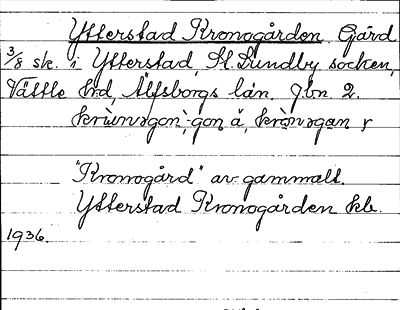 Ytterstad Kronogården Gård
3/8 sk. i Ytterstad, St. Lundby socken,
Vättle hd, Älfsborgs län. Jbn. 2.
"Kronogård" av gammalt.
Ytterstad Kronogården kb.
1936.